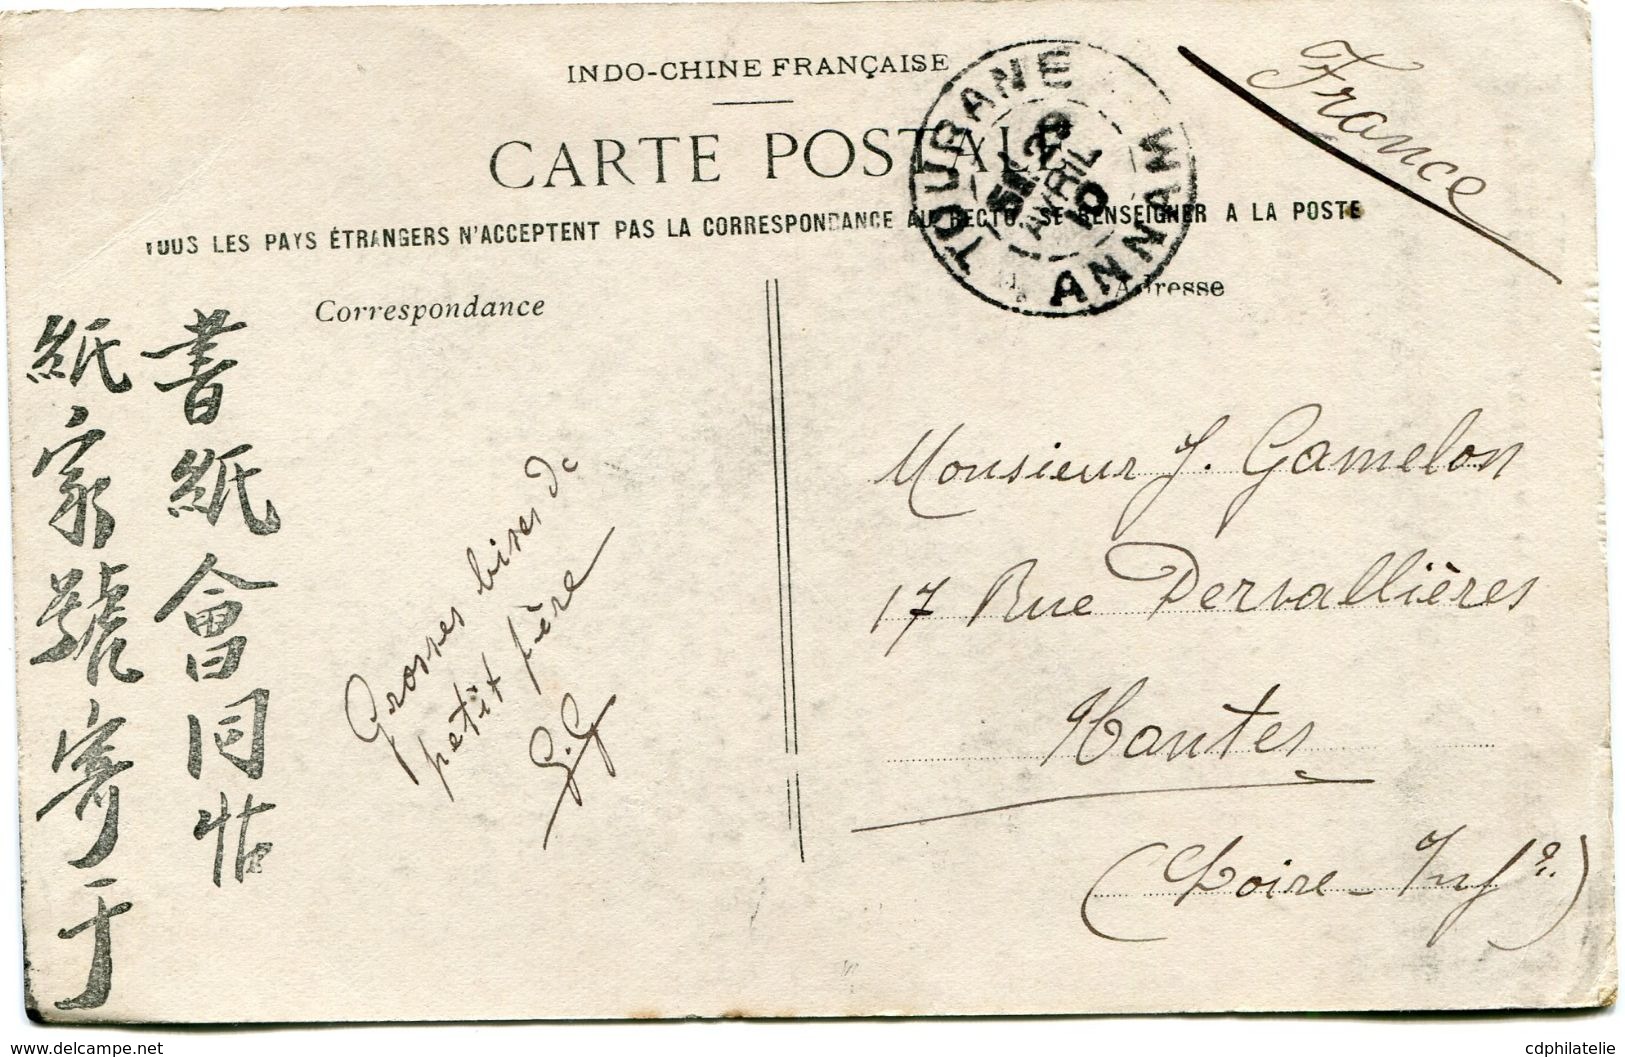 INDO-CHINE FRANÇAISE
CARTE POSTALE
TOUS LES PAYS ÉTRANGERS N'ACCEPTENT PAS LA CORRESPONDANCE AU RECTO. SE RENSEIGNER A LA POSTE
TOURANE
29
AVRIL
10
ANNAM
France
Correspondance
Adresse
書紙會同帖
紙家號寄于
Grosses bises de
petit frère
G.G
Monsieur J. Gamelon
17 Rue Dervallières
Nantes
(Loire-Infre)
www.delcampe.net
cdphilatelie